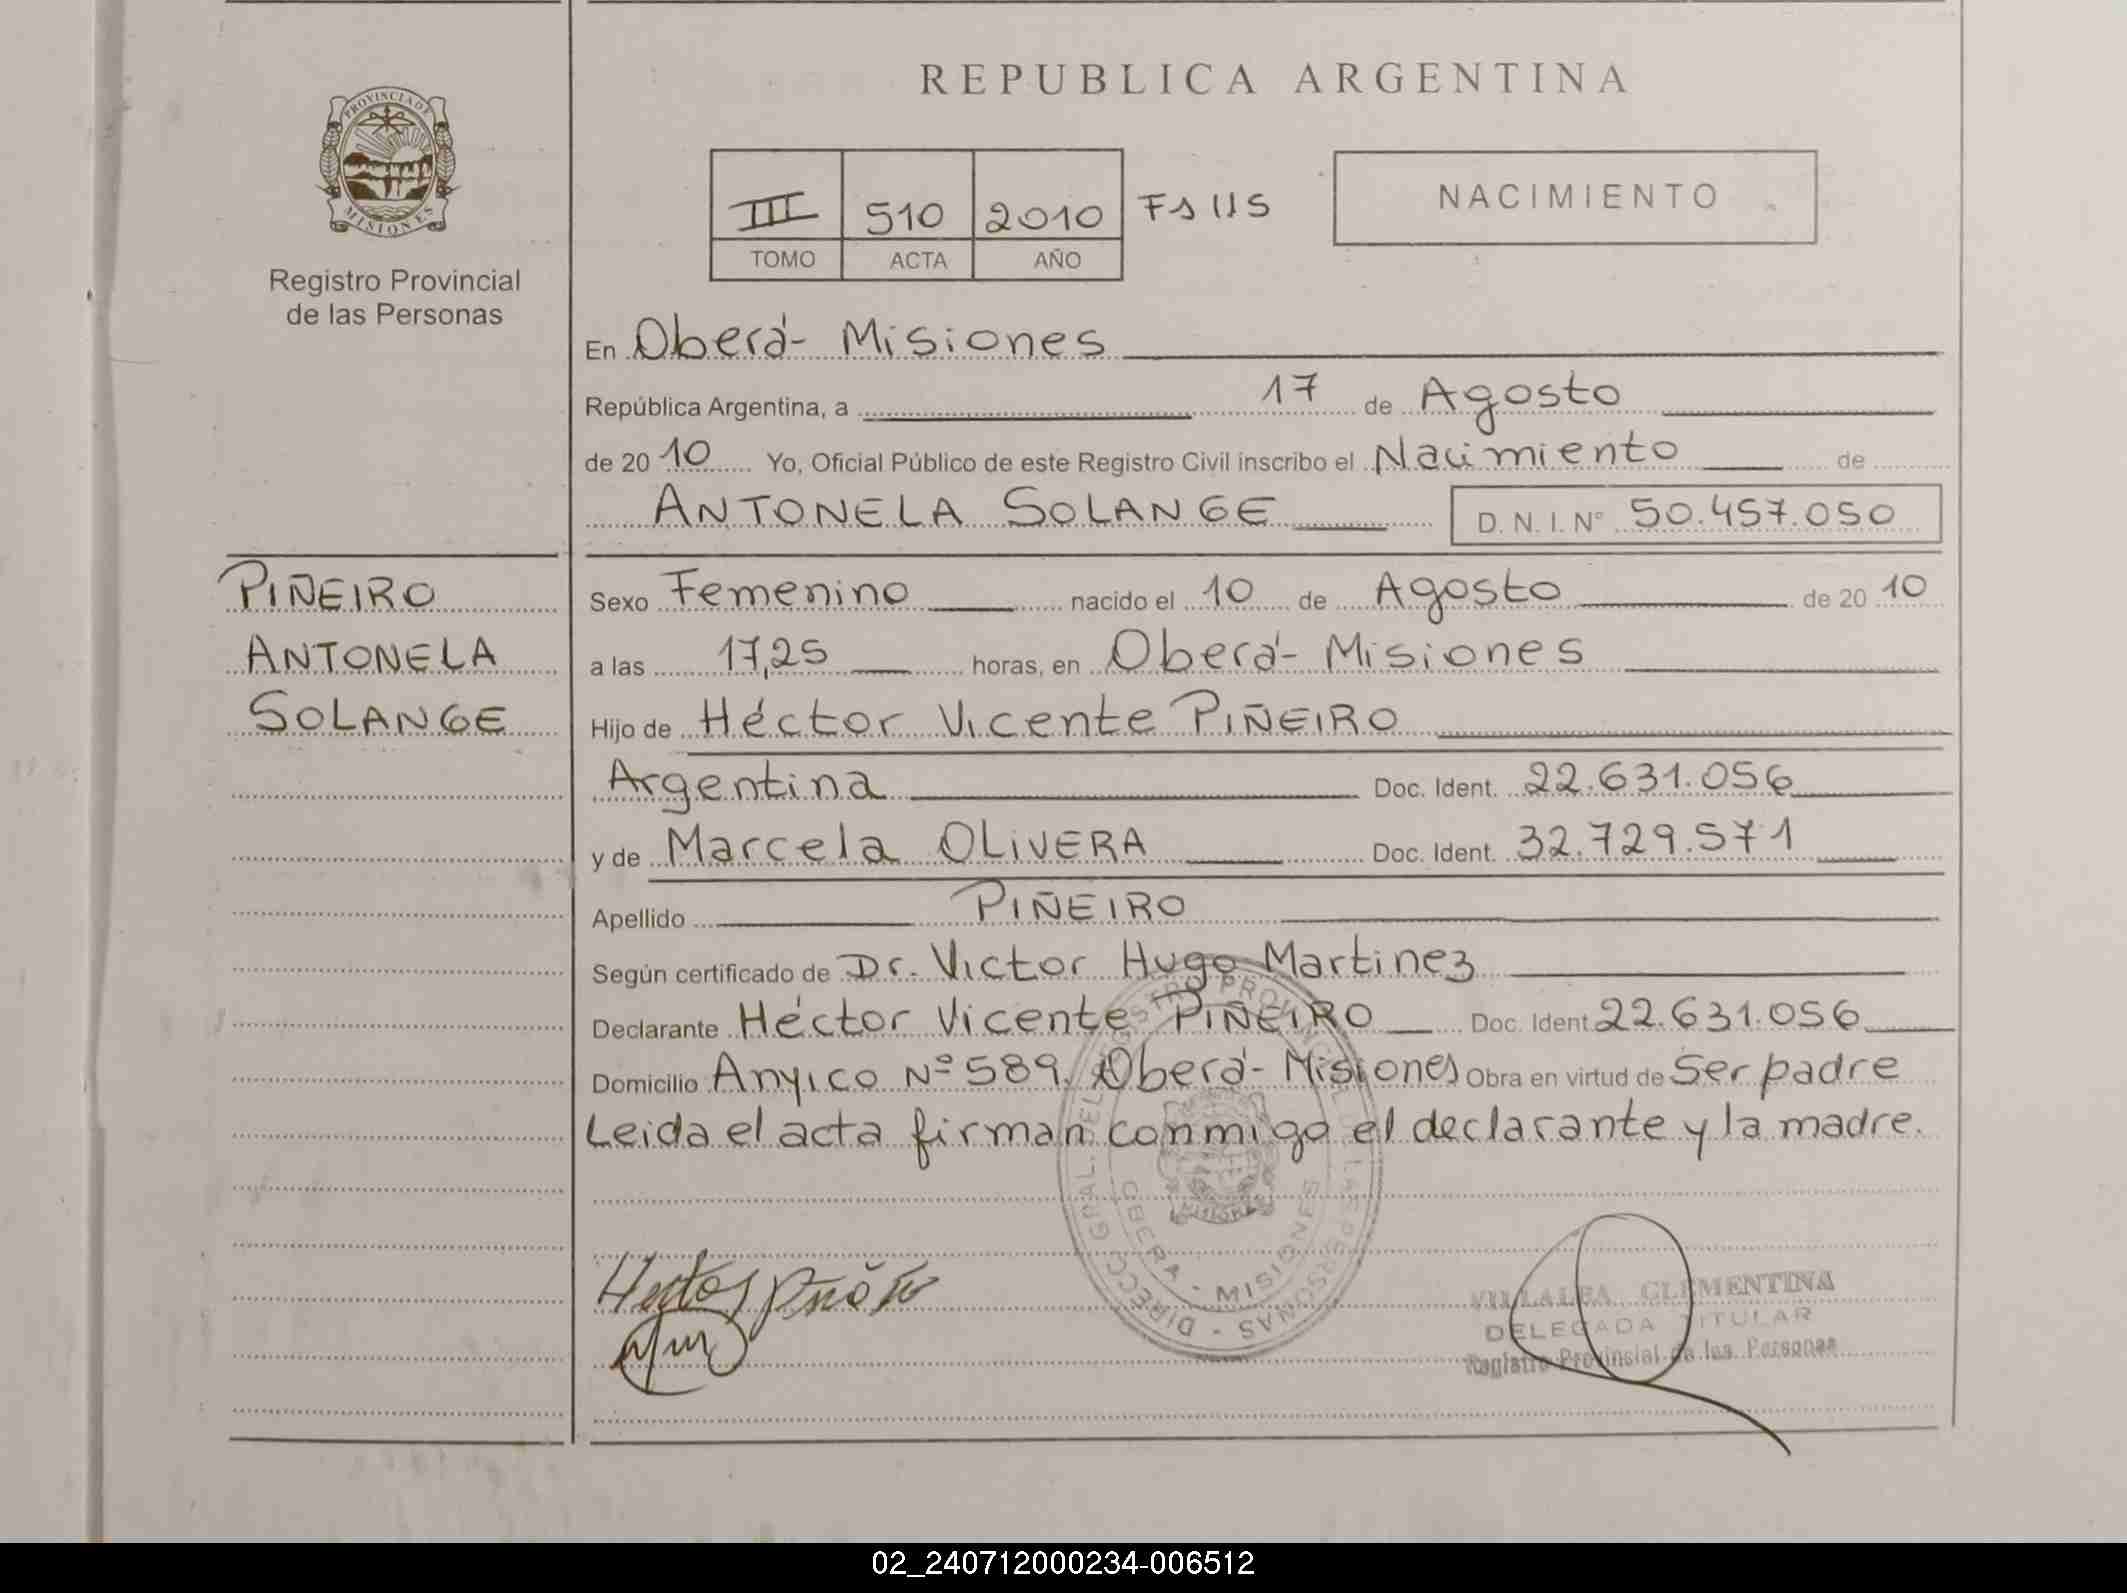 REPUBLICA ARGENTINA
PROVINCIA DE MISIONES
Registro Provincial
de las Personas
III 510 2010 Fs 115
TOMO ACTA AÑO
NACIMIENTO
En Oberá - Misiones
República Argentina, a 17 de Agosto
de 2010 Yo, Oficial Público de este Registro Civil inscribo el Nacimiento de
ANTONELA SOLANGE D. N. I. Nº 50.457.050
PIÑEIRO
ANTONELA
SOLANGE
Sexo Femenino nacido el 10 de Agosto de 2010
a las 17,25 horas, en Oberá - Misiones
Hijo de Héctor Vicente PIÑEIRO
Argentina Doc. Ident. 22.631.056
y de Marcela OLIVERA Doc. Ident. 32.729.571
Apellido PIÑEIRO
Según certificado de Dr. Victor Hugo Martinez
Declarante Héctor Vicente PIÑEIRO Doc. Ident 22.631.056
Domicilio Anyico Nº 589. Oberá - Misiones Obra en virtud de Ser padre
Leida el acta firman conmigo el declarante y la madre.
DIRECC. GRAL. DEL REGISTRO PROVINCIAL DE LAS PERSONAS
OBERA - MISIONES
VILLALBA CLEMENTINA
DELEGADA TITULAR
Registro Provincial de las Personas
02_240712000234-006512